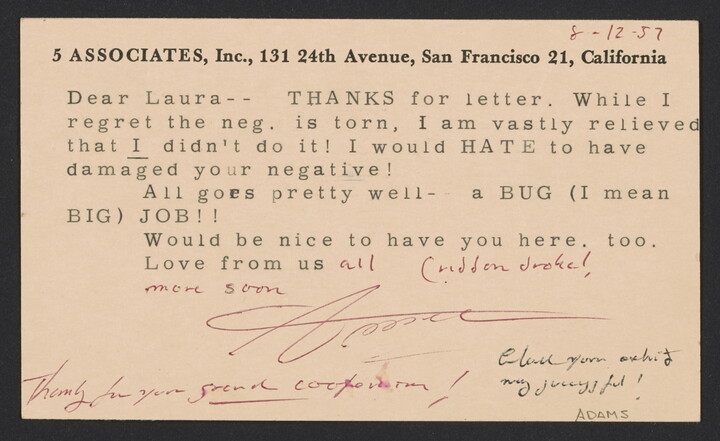 8-12-57
5 ASSOCIATES, Inc., 131 24th Avenue, San Francisco 21, California
Dear Laura-- THANKS for letter. While I
regret the neg. is torn, I am vastly relieved
that I didn't do it! I would HATE to have
damaged your negative!
All goes pretty well- a BUG (I mean
BIG) JOB!!
Would be nice to have you here. too.
Love from us all (ribbon broke!)
more soon
Thanks for your grand cooperation!
Glad your exhibit
successful!
ADAMS